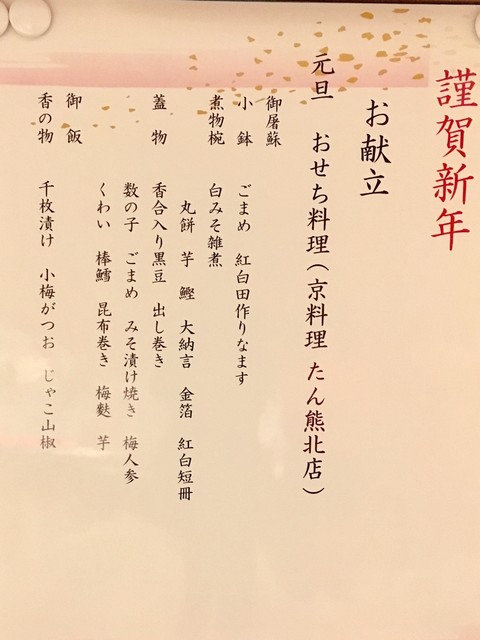 謹賀新年
お献立
元旦　おせち料理（京料理　たん熊北店）
御屠蘇
小　鉢　ごまめ　紅白田作りなます
煮物椀　白みそ雑煮
丸餅　芋　鰹　大納言　金箔　紅白短冊
蓋　物　香合入り黒豆　出し巻き
数の子　ごまめ　みそ漬け焼き　梅人参
くわい　棒鱈　昆布巻き　梅麩　芋
御　飯
香の物　千枚漬け　小梅がつお　じゃこ山椒